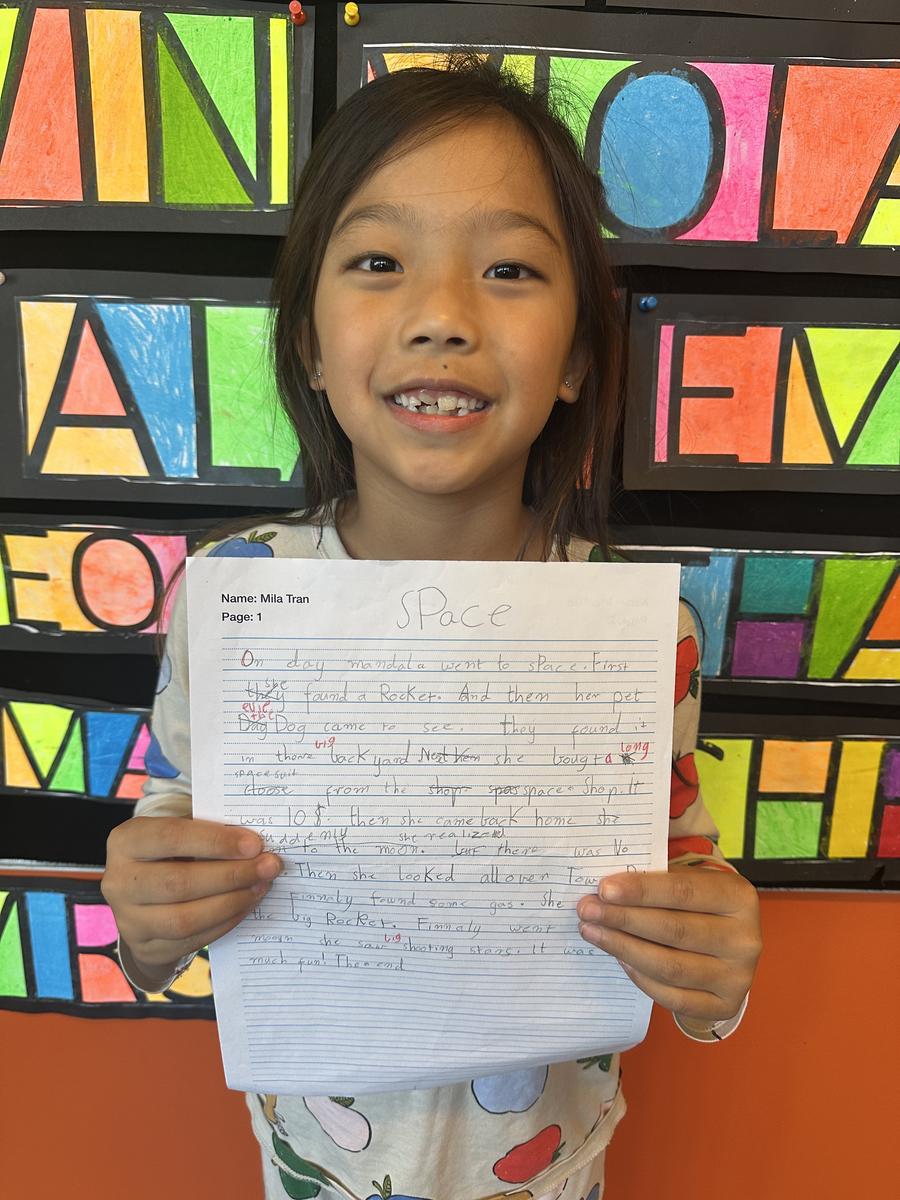 AN
OLA
AL
EV
EO
HA
MMA
THI
MRS
Name: Mila Tran
Page: 1
SPace
On day mandala went to space. First
they she found a Rocket. And then her pet
Dag Dog came to see. they found it
in there big back yard Next then she bougt a long
space suit
from the shop spas space Shop. It
was 10 $. then she came back home she
suddenly she realized
to the moon. but there was No
. Then she looked all over Tow
Finnaly found some gas. She
the big Rocket. Finnaly went
moon she saw big shooting stars. It was
much fun! The end